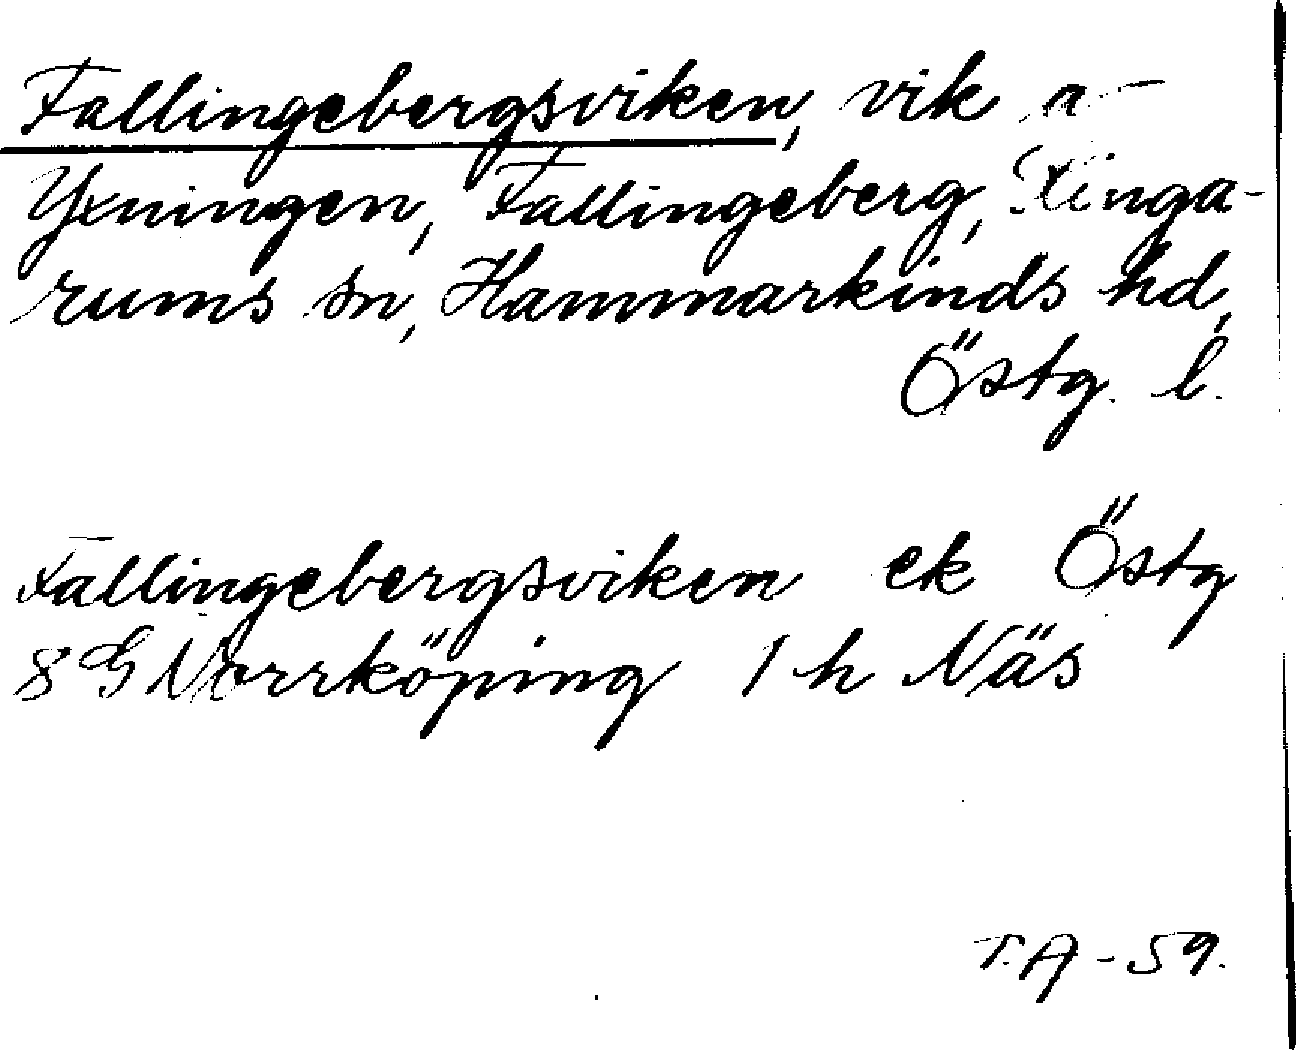 Fallingebergsviken, vik a
Yxningen, Fallingeberg, Ringa-
rums sn, Hammarkinds hd,
Östg. l.
Fallingebergsviken ek Östg
8 G Norrköping 1 h Näs
T.A - 59.